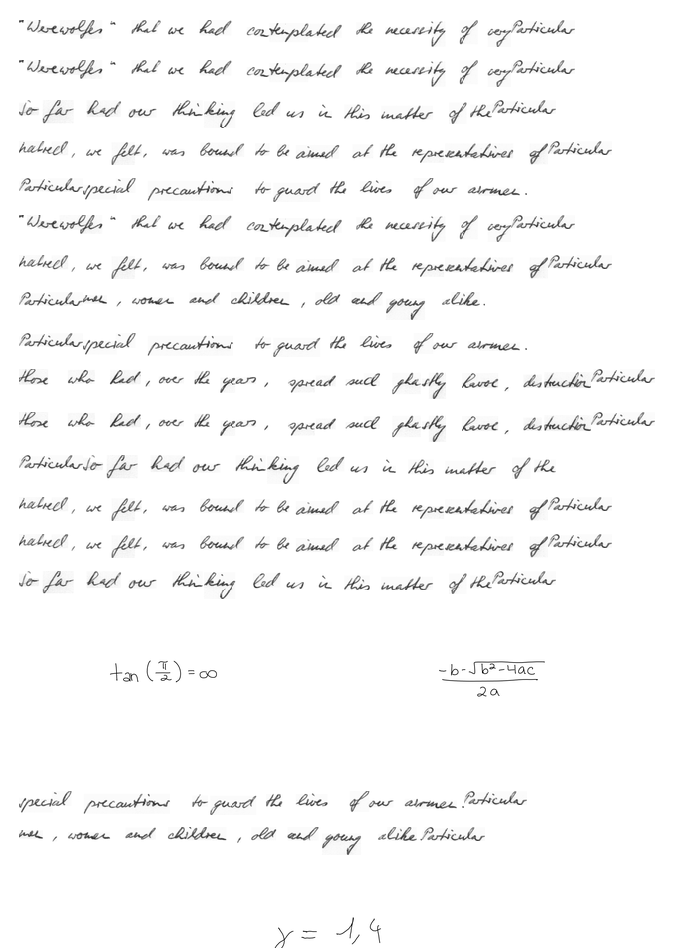 "Werewolfes" that we had contemplated the necessity of very Particular
"Werewolfes" that we had contemplated the necessity of very Particular
So far had our thinking led us in this matter of the Particular
hatred, we felt, was bound to be aimed at the representatives of Particular
Particular special precautions to guard the lives of our airmen.
"Werewolfes" that we had contemplated the necessity of very Particular
hatred, we felt, was bound to be aimed at the representatives of Particular
Particular men, women and children, old and young alike.
Particular special precautions to guard the lives of our airmen.
those who had, over the years, spread such ghastly havoc, destruction Particular
those who had, over the years, spread such ghastly havoc, destruction Particular
Particular So far had our thinking led us in this matter of the
hatred, we felt, was bound to be aimed at the representatives of Particular
hatred, we felt, was bound to be aimed at the representatives of Particular
So far had our thinking led us in this matter of the Particular
tan (π/2) = ∞
(-b-√(b²-4ac))/(2a)
special precautions to guard the lives of our airmen. Particular
men, women and children, old and young alike Particular
γ = 1,4